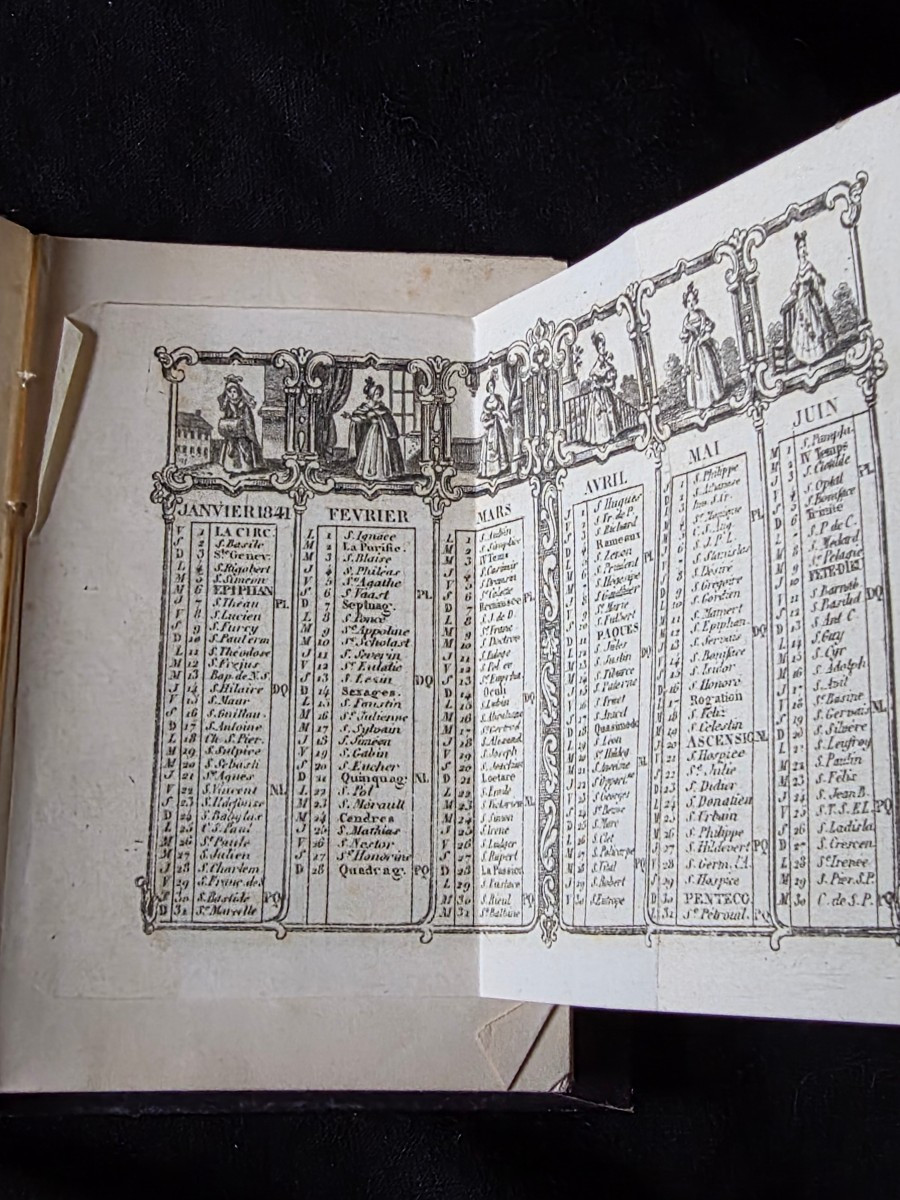 JANVIER 1841
V 1 LA CIRC.
S 2 S. Basile
D 3 Ste Genev.
L 4 S. Rigobert
M 5 S. Simeon
M 6 EPIPHAN
J 7 S. Théau PL
V 8 S. Lucien
S 9 S. Furcy
D 10 S. Paul erm
L 11 S. Théodose
M 12 S. Frejus
M 13 Bap. de N.S.
J 14 S. Hilaire DQ
V 15 S. Maur
S 16 S. Guillau.
D 17 S. Antoine
L 18 Ch. S. Pier.
M 19 S. Sulpice
M 20 S. Sebasti
J 21 Ste Agnès
V 22 S. Vincent NL
S 23 S. Ildefonse
D 24 S. Babylas
L 25 C. S. Paul
M 26 Ste Paule
M 27 S. Julien
J 28 S. Charlem
V 29 S. Franc. de S
S 30 S. Bastide PQ
D 31 Ste Marcelle
FEVRIER
L 1 S. Ignace
M 2 La Purific.
M 3 S. Blaise
J 4 S. Philéas
V 5 Ste Agathe
S 6 S. Vaast PL
D 7 Septuag.
L 8 S. Ponce
M 9 Ste Appoline
M 10 Ste Scholast
J 11 S. Severin
V 12 Ste Eulalie
S 13 S. Lezin DQ
D 14 Sexages.
L 15 S. Faustin
M 16 Ste Julienne
M 17 S. Sylvain
J 18 S. Siméon
V 19 S. Gabin
S 20 S. Eucher
D 21 Quinquag. NL
L 22 S. Pol
M 23 S. Mérault
M 24 Cendres
J 25 S. Mathias
V 26 S. Nestor
S 27 Ste Honorine
D 28 Quadrag. PQ
MARS
L 1 S. Aubin
M 2 S. Simplice
M 3 IV Tems
J 4 S. Casimir
V 5 S. Drausin
S 6 Ste Colette
D 7 Reminisce PL
L 8 S. J. de D.
M 9 Ste Franc
M 10 S. Doctrov
J 11 S. Euloge
V 12 S. Pol ev
S 13 Ste Euphra.
D 14 Oculi DQ
L 15 S. Lubin
M 16 S. Abraham
M 17 Ste Gertrud
J 18 S. Alexand.
V 19 S. Joseph
S 20 S. Joachim
D 21 Loetare
L 22 S. Emile
M 23 S. Victorien NL
M 24 S. Simon
J 25 S. Irene
V 26 S. Ludger
S 27 S. Rupert
D 28 La Passion
L 29 S. Eustace
M 30 S. Rieul PQ
M 31 Ste Balbine
AVRIL
J 1 S. Hugues
V 2 S. Fr. de P.
S 3 S. Richard
D 4 Rameaux
L 5
M 6 S. Prudent PL
M 7 S. Hegesipe
J 8 S. Gauthier
V 9 Ste Marie
S 10 S. Fulbert
D 11 PAQUES
L 12 S. Jules
M 13 S. Justin DQ
M 14 S. Tiburce
J 15 S. Paterne
V 16
S 17 S. Anicet
D 18 Quasimodo
L 19 S. Léon
M 20 Ste Hildeg
M 21 S. Anselme NL
J 22 Ste Opport.
V 23 S. Georges
S 24 Ste Beuve
D 25 S. Marc
L 26 S. Clet
M 27 S. Polycarpe
M 28 S. Vital PQ
J 29 S. Robert
V 30 S. Eutrope
MAI
S 1 S. Philippe
D 2 S. Athanase
L 3 Inv. S. Cr.
M 4 Ste Monique
M 5 PL
J 6 S. J. P. L.
V 7 S. Stanislas
S 8 S. Desiré
D 9 S. Gregoire
L 10 S. Gordien
M 11 S. Mamert
M 12 S. Epiphan.
J 13 S. Servais DQ
V 14 S. Boniface
S 15 S. Isidor
D 16 S. Honoré
L 17 Rogation
M 18 S. Felix
M 19 S. Celestin
J 20 ASCENSIO NL
V 21 S. Hospice
S 22 Ste Julie
D 23 S. Didier
L 24 S. Donatien
M 25 S. Urbain
M 26 S. Philippe
J 27 S. Hildevert PQ
V 28 S. Germ. l'A.
S 29 S. Hospice
D 30 PENTECO.
L 31 Ste Pétronil. PQ
JUIN
M 1 S. Pamphi.
M 2 IV Temps
J 3 S. Clotilde
V 4 S. Optat PL
S 5 S. Boniface
D 6 Trinité
L 7 S. P. de C.
M 8 S. Medard
M 9 Ste Pelagie
J 10 FÊTE-DIEU
V 11 S. Barnab
S 12 S. Basilid DQ
D 13 S. Ant C.
L 14 S. Guy
M 15 S. Cyr
M 16 S. Adolph
J 17 S. Avit
V 18 Ste Basine
S 19 S. Gervais NL
D 20 S. Silvere
L 21 S. Leufroy
M 22 S. Paulin
M 23 S. Felix
J 24 S. Jean B.
V 25 PQ
S 26 S. Ladisla
D 27 S. Crescen
L 28 S. Irenée
M 29 S. Pier. S. P.
M 30 C. de S. P. PQ